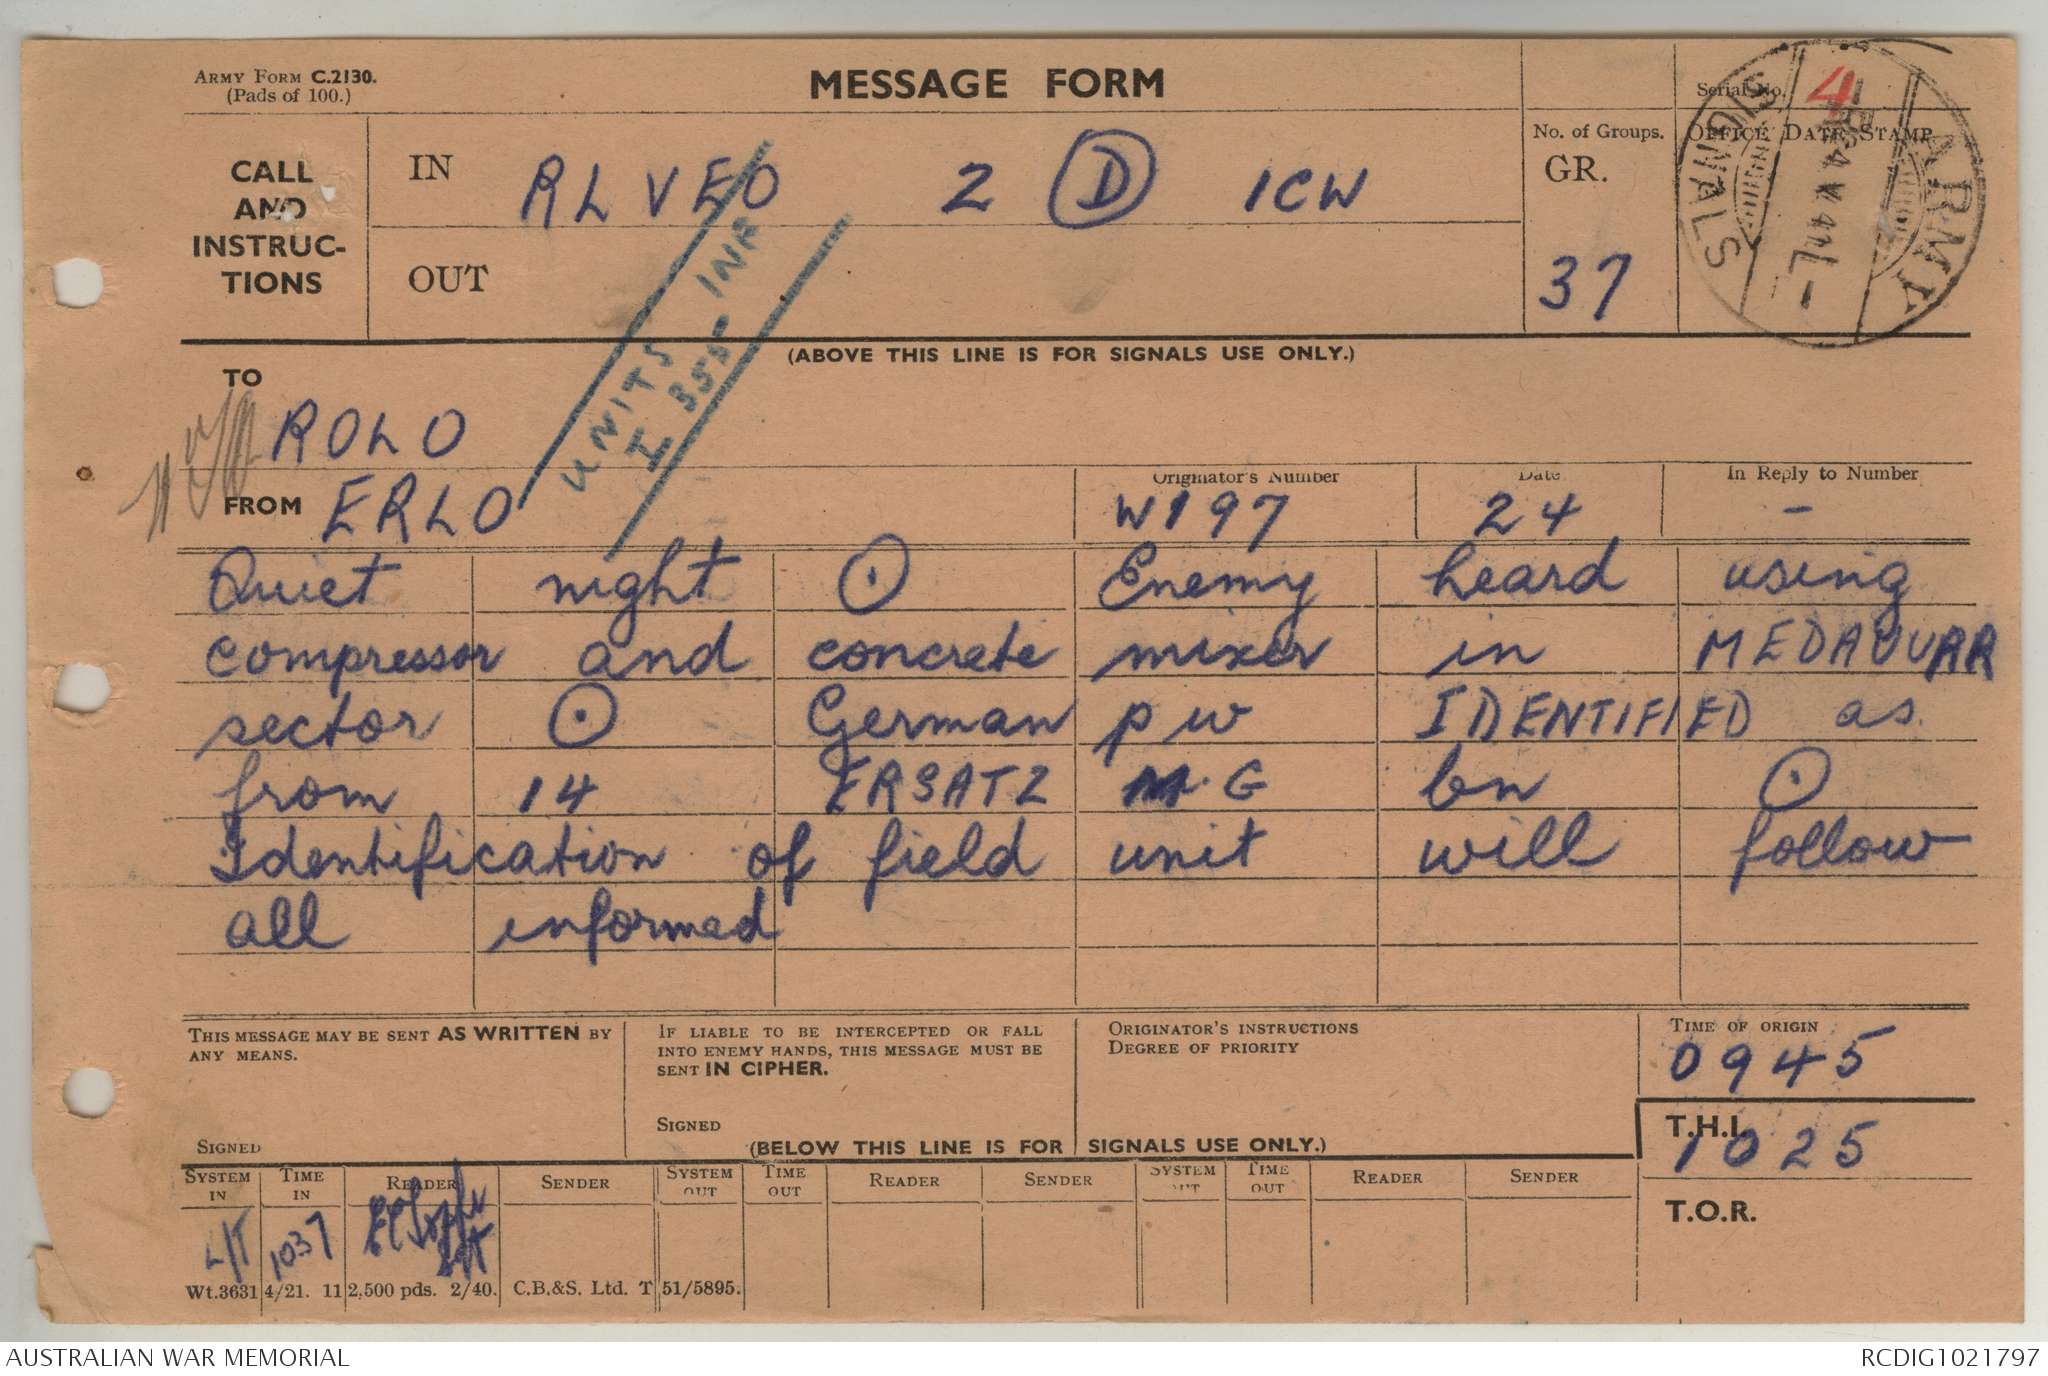 ARMY FORM C.2130.
(Pads of 100.)
MESSAGE FORM
Serial No. 4
CALL
AND
INSTRUC-
TIONS
IN RLVEO 2 (D) ICW
OUT
No. of Groups.
GR.
37
OFFICE DATE STAMP
ARMY SIGNALS
UNITS INF
I 355
(ABOVE THIS LINE IS FOR SIGNALS USE ONLY.)
TO ROLO
FROM ERLO
Originator's Number W197
Date 24
In Reply to Number -
Quiet night ⊙ Enemy heard using
compressor and concrete mixer in MEDAUUAR
sector ⊙ German pw IDENTIFIED as
from 14 ERSATZ M.G bn ⊙
Identification of field unit will follow
all informed
THIS MESSAGE MAY BE SENT AS WRITTEN BY
ANY MEANS.
SIGNED
IF LIABLE TO BE INTERCEPTED OR FALL
INTO ENEMY HANDS, THIS MESSAGE MUST BE
SENT IN CIPHER.
SIGNED
ORIGINATOR'S INSTRUCTIONS
DEGREE OF PRIORITY
TIME OF ORIGIN
0945
T.H.I.
1025
T.O.R.
(BELOW THIS LINE IS FOR SIGNALS USE ONLY.)
SYSTEM IN TIME IN READER SENDER SYSTEM OUT TIME OUT READER SENDER SYSTEM OUT TIME OUT READER SENDER
L/T 1037
Wt.3631 4/21. 11 2,500 pds. 2/40. C.B.&S. Ltd. T 51/5895.
AUSTRALIAN WAR MEMORIAL RCDIG1021797